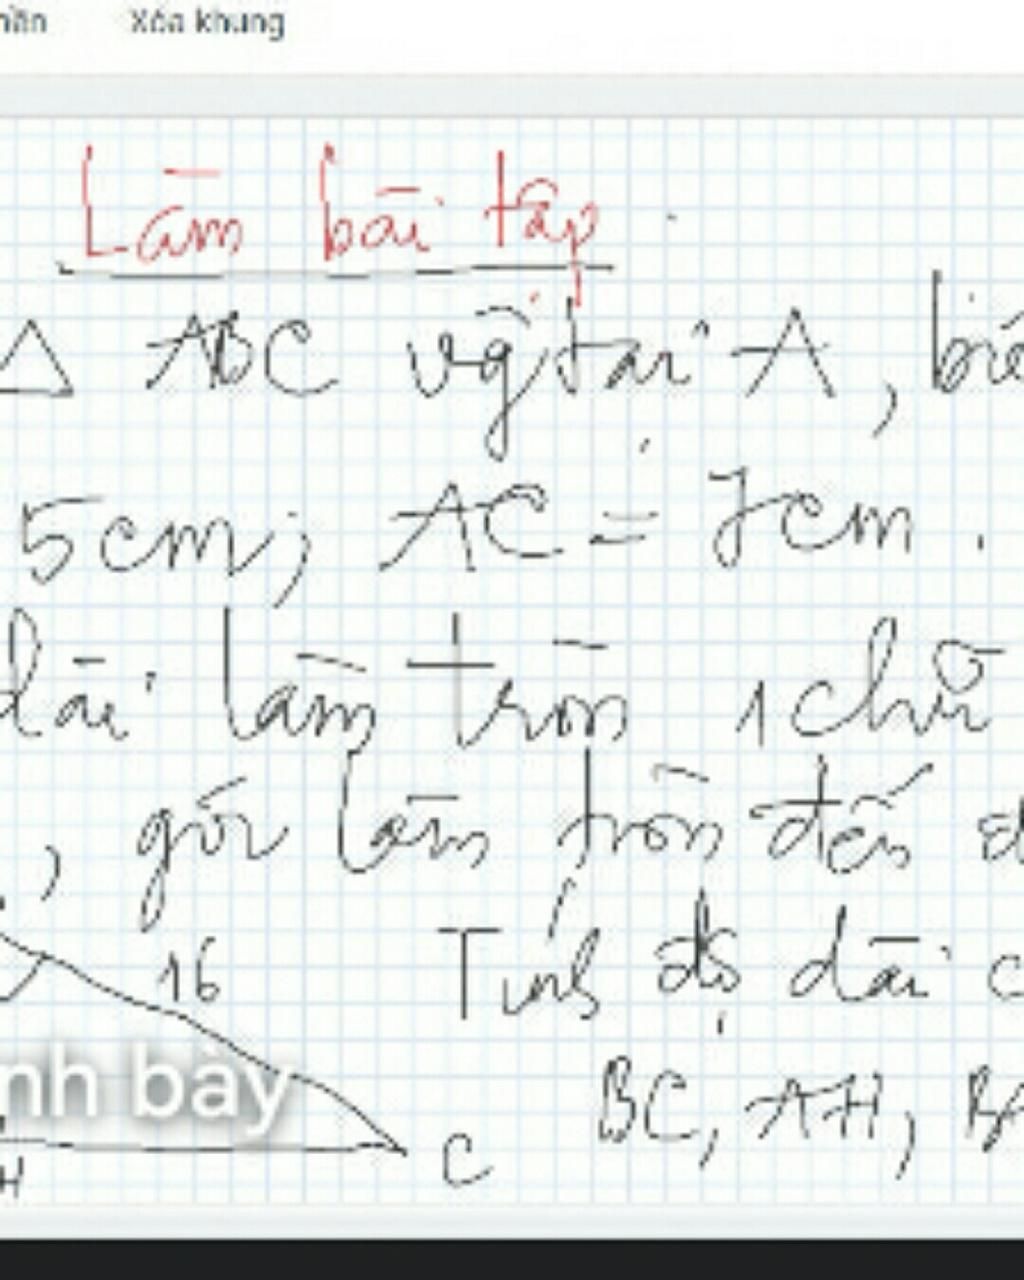 Xóa khung
Làm bài tập
△ ABC vg tại A, biế
5cm; AC = 7cm.
dài làm tròn 1 chữ
, góc làm tròn đến đ
16 Tính độ dài c
nh bày
BC, AH, BA
H C